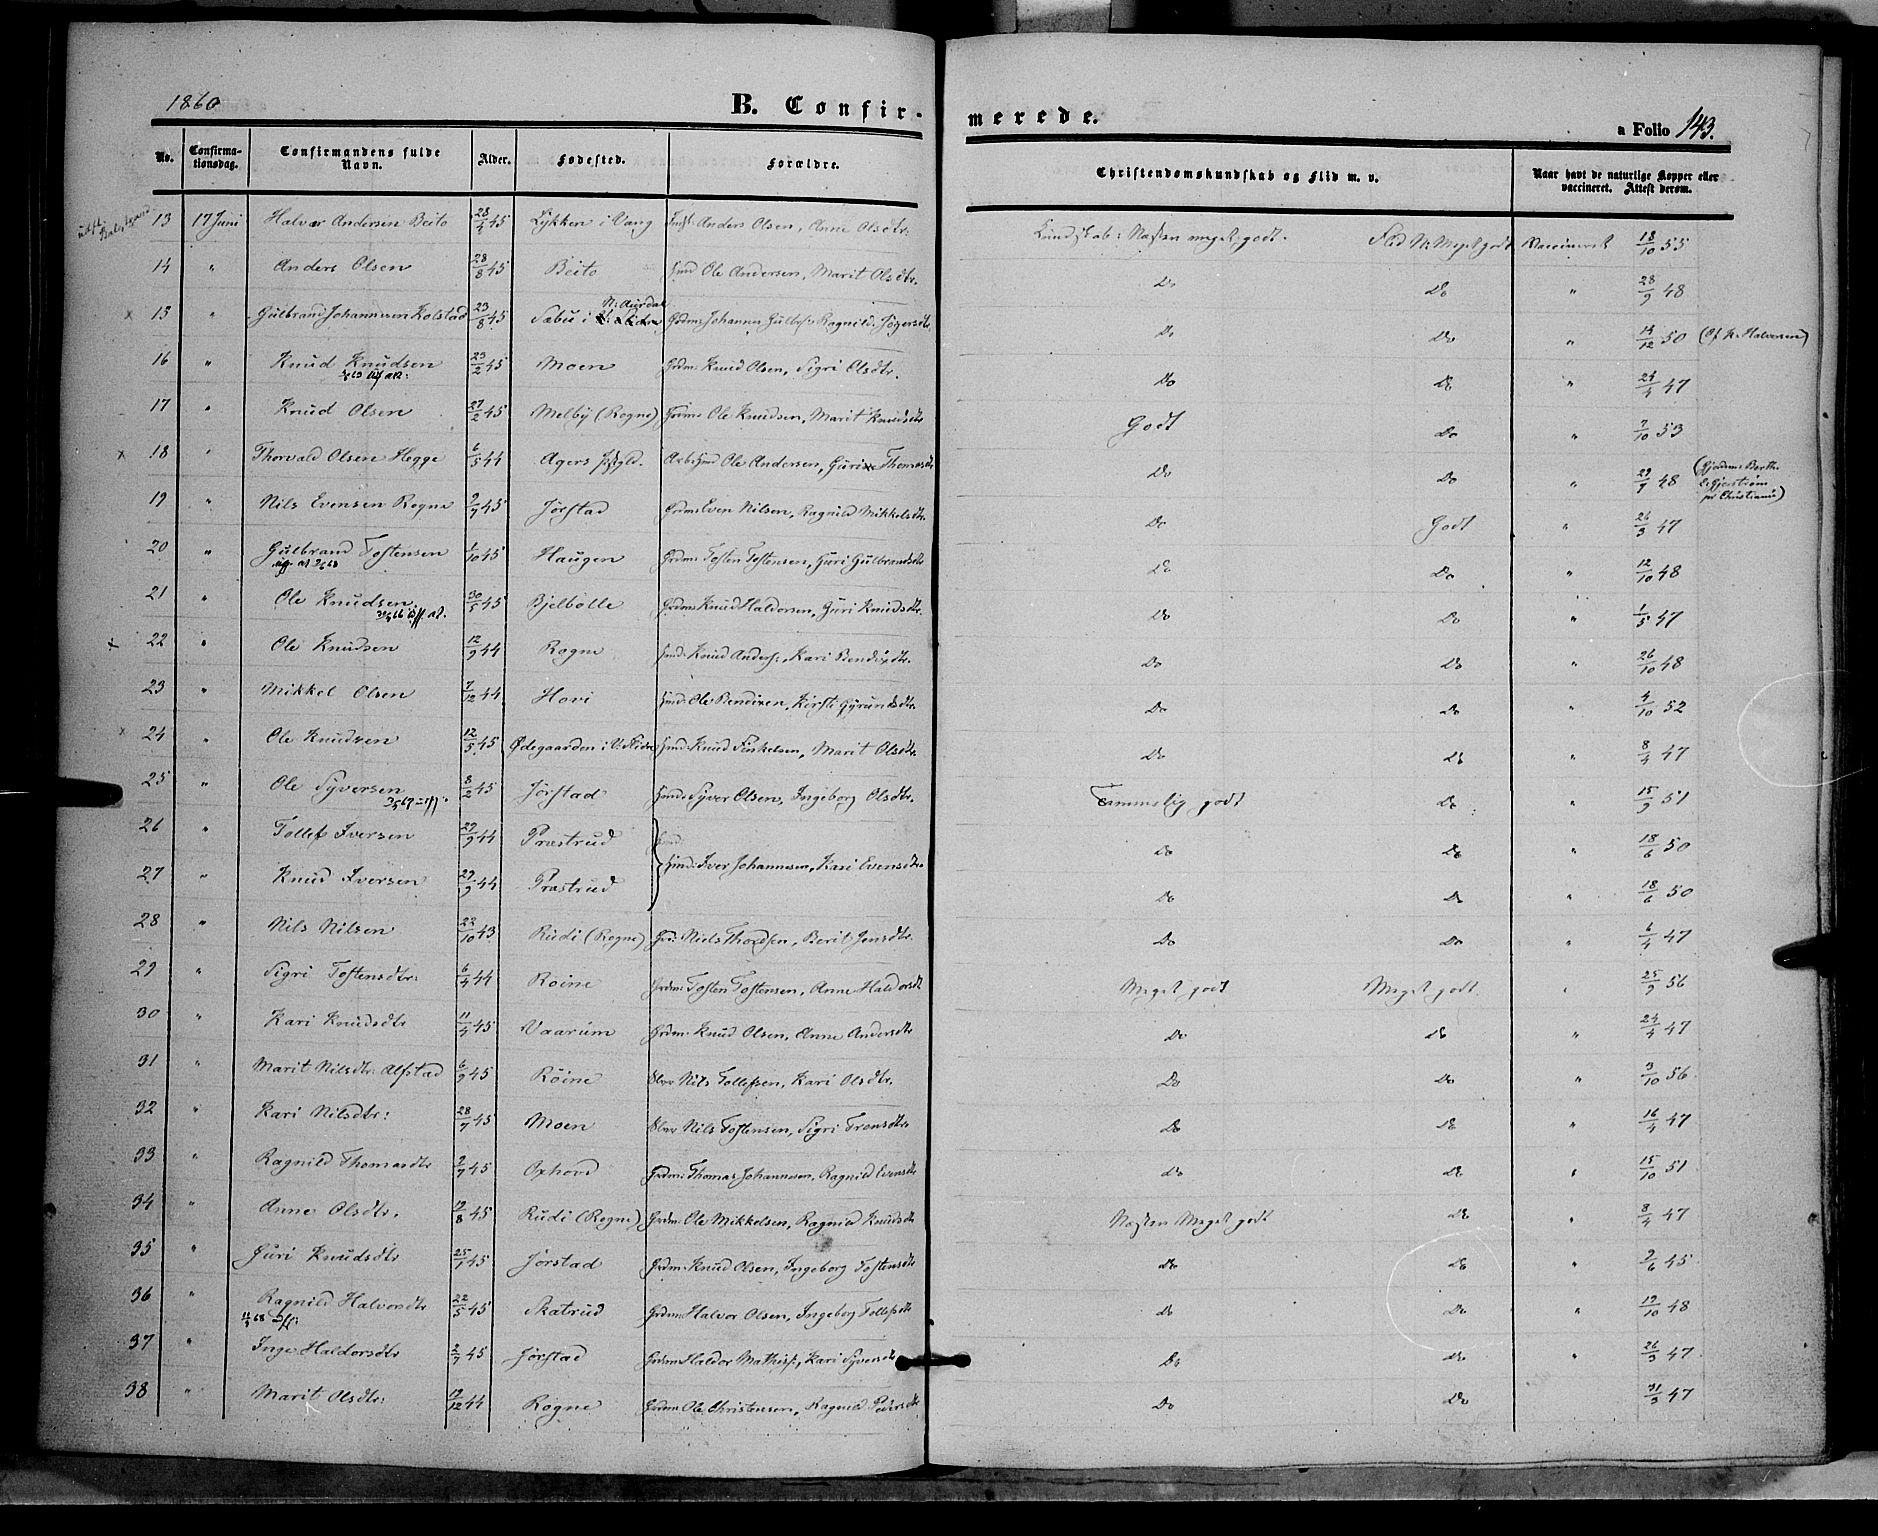 1860
B. Confir-
merede.
a Folio 143.
No. Confirmationsdag. Confirmandens fulde Navn. Alder. Fødested. Forældre. Christendomskundskab og Flid m. v. Naar havt de naturlige Kopper eller vaccineret. Attest derom.
13 17 Juni Halvor Andersen Beito 28/4 45 Lykken i Vang Anders Olsen, Anne Olsdtr. Kundskab: Næsten meget godt. Flid M: Meget godt Vaccineret 18/10 55
14 " Anders Olsen 28/8 45 Beito Hmd Ole Andersen, Marit Olsdtr. Do Do " 28/9 48
x 15 " Gulbrand Johannesen Kolstad 23/8 45 Sæbu i N: Aurdal Grdm: Johannes Gulbrs: Ragnild Do Do " 14/12 50 (Of K. Halvorsen)
16 " Knud Knudsen 23/2 45 Moen Grdm: Knud Olsen, Sigri Olsdtr. Do Do " 24/4 47
17 " Knud Olsen 27/2 45 Melby (Rogne) Grdm: Ole Knudsen, Marit Knudsdtr Godt Do " 7/10 53
x 18 " Thorvald Olsen Hegge 6/5 44 Agers Ole Andersen, Guri Thomasdtr Do Do " 29/9 48 (Gjordem: Berth. Christiania)
19 " Nils Evensen Rogne 2/7 45 Jørstad Grdm: Even Nilsen, Ragnild Mikkelsdtr. Do Godt " 26/3 47
20 " Gulbrand Tostensen 1/10 45 Haugen Grdm: Tosten Tostensen, Guri Gulbrandsdtr Do Do " 12/10 48
21 " Ole Knudsen 30/5 45 Bjelbølle Grdm: Knud Haldorsen, Guri Knudsdtr. Do Do " 1/5 47
x 22 " Ole Knudsen 12/9 44 Rogne Hmd: Knud Anders:, Kari Bendixdtr. Do Do " 26/10 48
23 " Mikkel Olsen 7/12 44 Hovi Hmd: Ole Bendixen, Kirsti Gjrundsdtr. Do Do " 4/10 52
x 24 " Ole Knudsen 12/5 45 Ødegaarden i V: Slidre Hmd: Knud Finkelsen, Marit Olsdtr. Do Do " 8/4 47
25 " Ole Syversen 8/2 45 Jørstad Hmd: Syver Olsen, Ingeborg Olsdtr. Temmelig godt Do " 15/9 51
26 " Tollef Iversen 29/9 44 Præstrud Do Do " 18/6 50
Hmd: Iver Johannesen, Kari Evensdtr.
27 " Knud Iversen 29/9 44 Præstrud Do Do " 18/6 50
28 " Nils Nilsen 22/10 43 Rudi (Rogne) Niels Thordsen, Berit Jensdtr. Do Do " 6/4 47
29 " Sigri Tostensdtr: 6/4 44 Røine Grdm: Tosten Tostensen, Anne Haldorsdt Meget godt Meget godt " 25/9 56
30 " Kari Knudsdtr 11/4 45 Vaarum Grdm: Knud Olsen, Anne Andersdtr Do Do " 24/4 47
31 " Marit Nilsdtr: Alfstad 6/9 45 Røine Nils Tollefsen, Kari Olsdtr. Do Do " 3/10 56
32 " Kari Nilsdtr: 28/7 45 Moen Nils Tostensen, Sigri Tronsdtr. Do Do " 16/4 47
33 " Ragnild Thomasdtr 2/7 45 Oxhovd Grdm: Thomas Johannesen, Ragnild Evensdtr Do Do " 15/10 51
34 " Anne Olsdtr. 19/8 45 Rudi (Rogne) Grdm: Ole Mikkelsen, Ragnild Knudsdtr Næsten Meget godt Do " 8/4 47
35 " Guri Knudsdtr 25/1 45 Jørstad Grdm: Knud Olsen, Ingeborg Tostensdtr Do Do " 2/6 45
36 " Ragnild Halvorsdtr 22/5 45 Skatrud Grdm: Halvor Olsen, Ingeborg Tollefsdtr Do Do " 19/10 48
37 " Inge Haldorsdtr 2/7 45 Jørstad Grdm: Haldor Mathis:, Kari Syversdtr Do Do " 26/3 47
38 " Marit Olsdtr: 19/12 44 Rogne Grdm: Ole Christensen, Ragnild Pedersdtr Do Do " 31/3 47